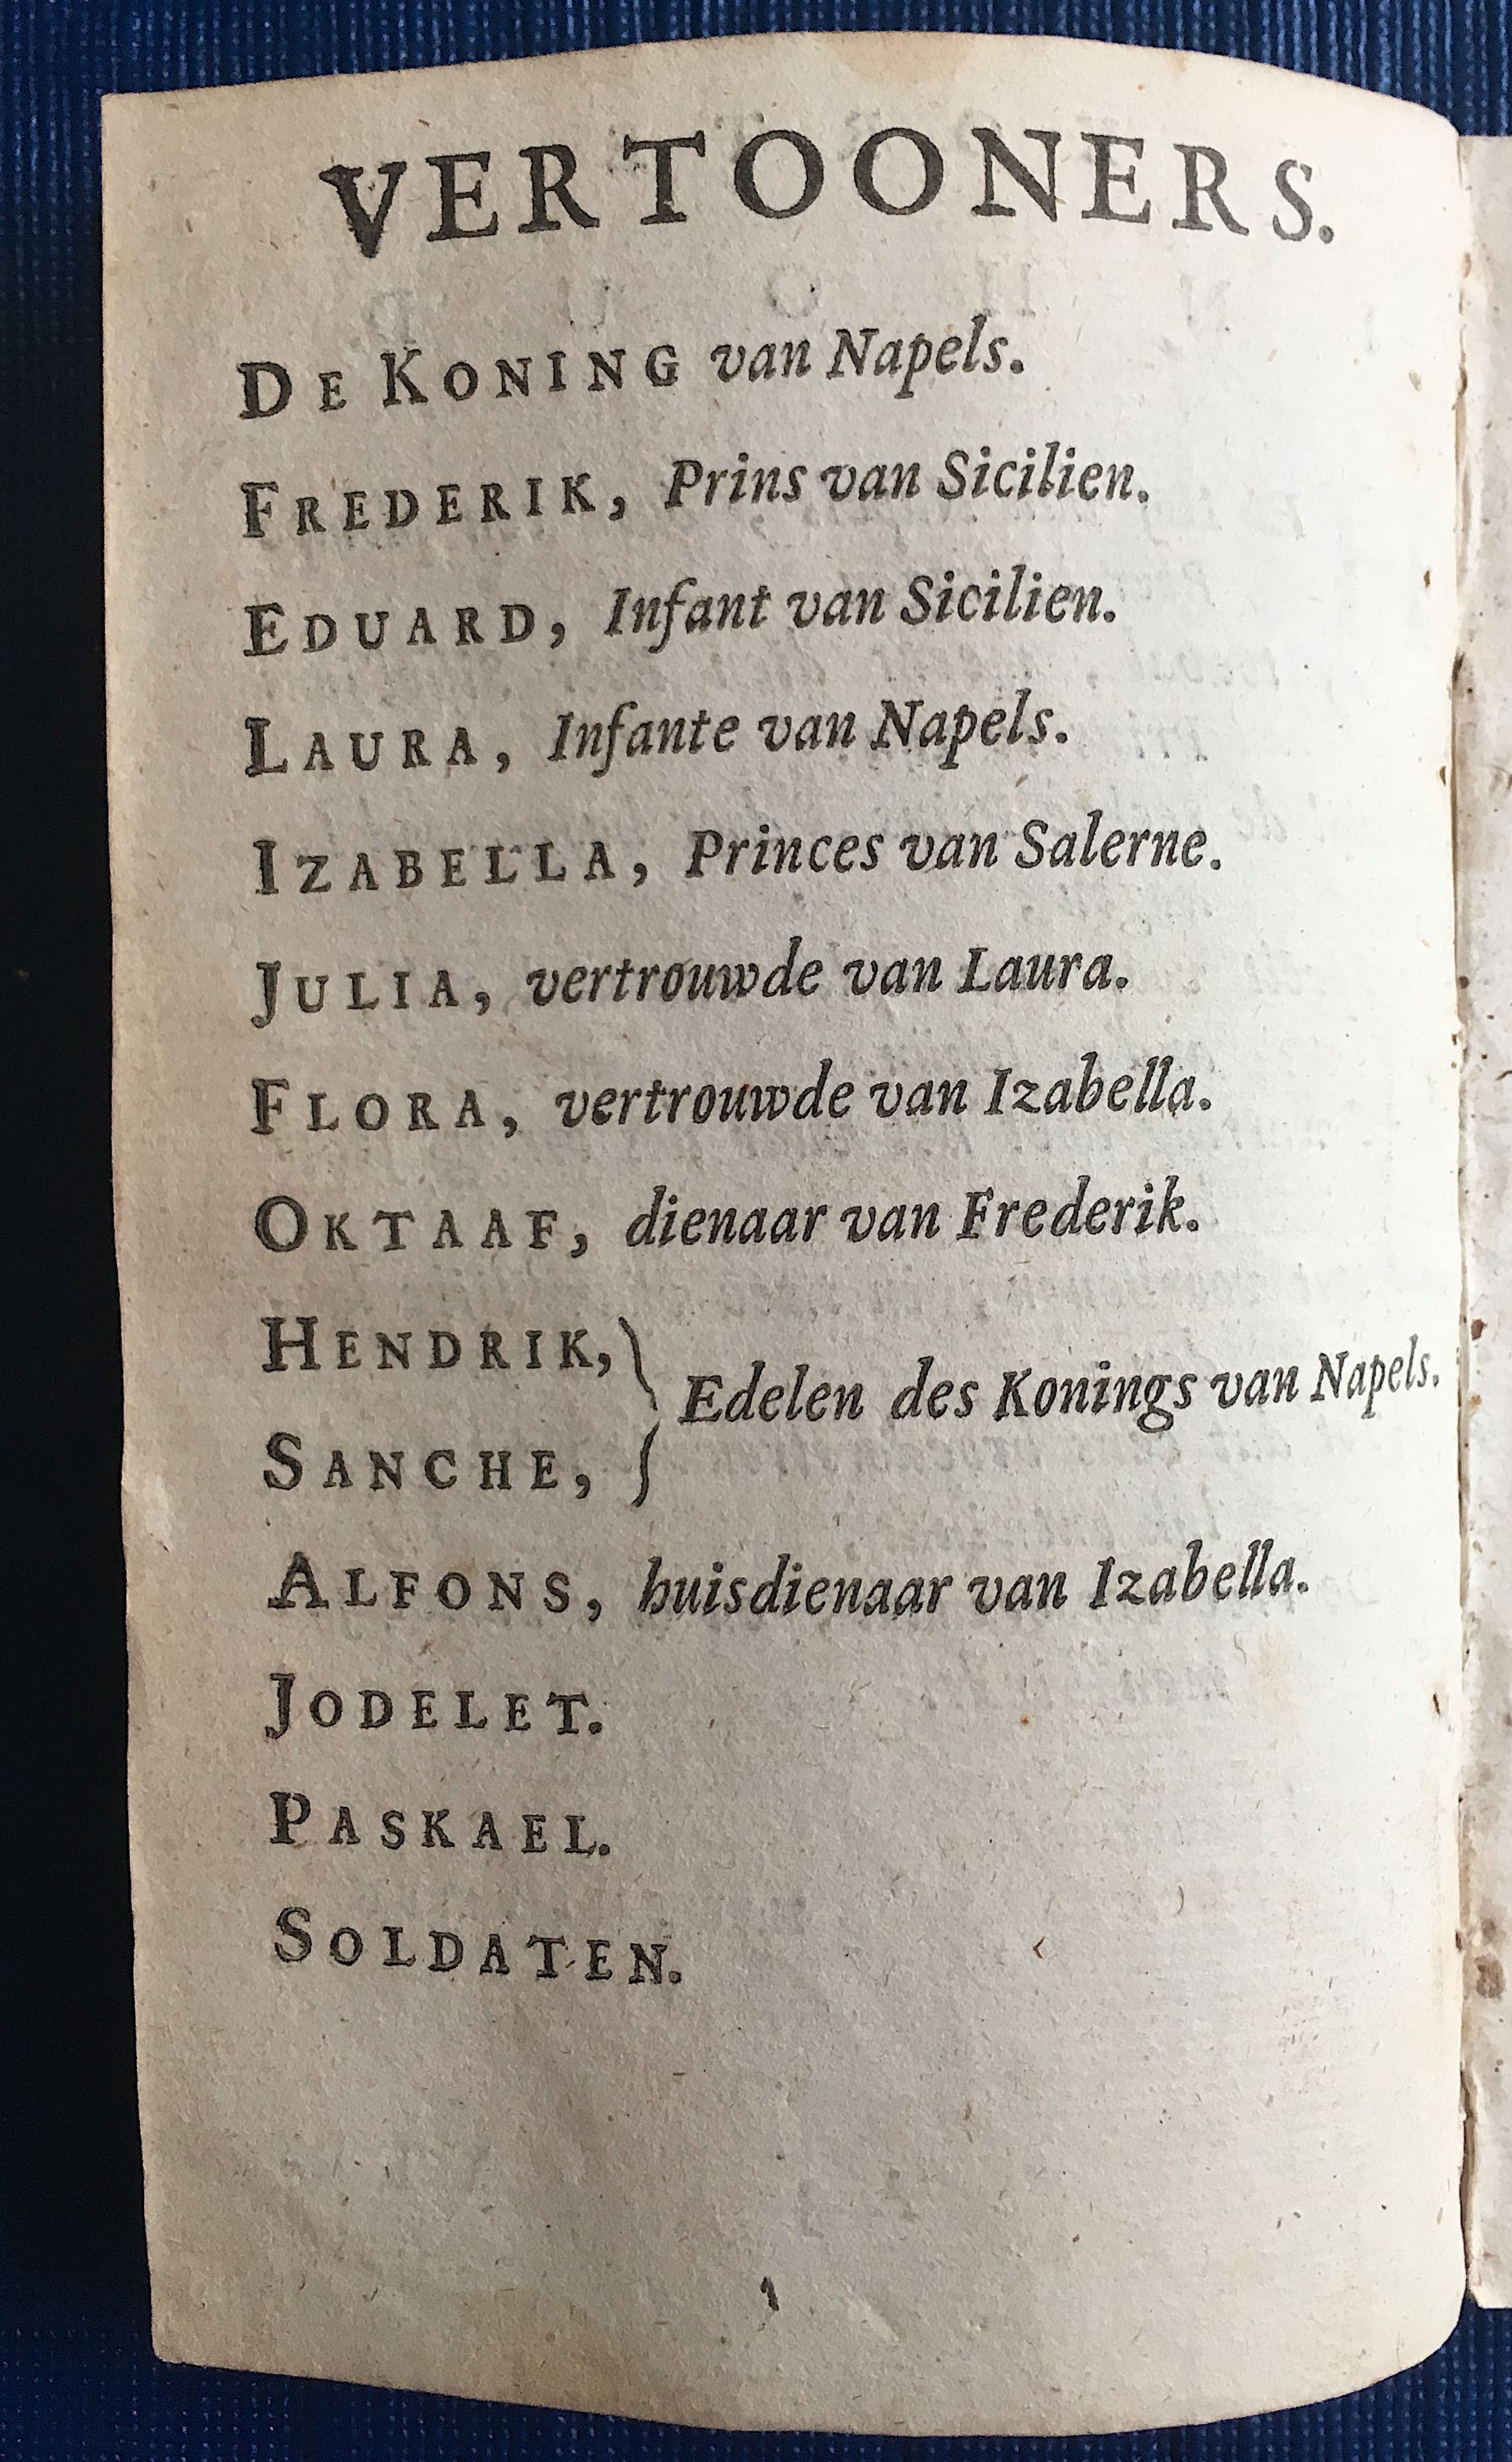 VERTOONERS.
DE KONING van Napels.
FREDERIK, Prins van Sicilien.
EDUARD, Infant van Sicilien.
LAURA, Infante van Napels.
IZABELLA, Princes van Salerne.
JULIA, vertrouwde van Laura.
FLORA, vertrouwde van Izabella.
OKTAAF, dienaar van Frederik.
HENDRIK,
Edelen des Konings van Napels.
SANCHE,
ALFONS, huisdienaar van Izabella.
JODELET.
PASKAEL.
SOLDATEN.